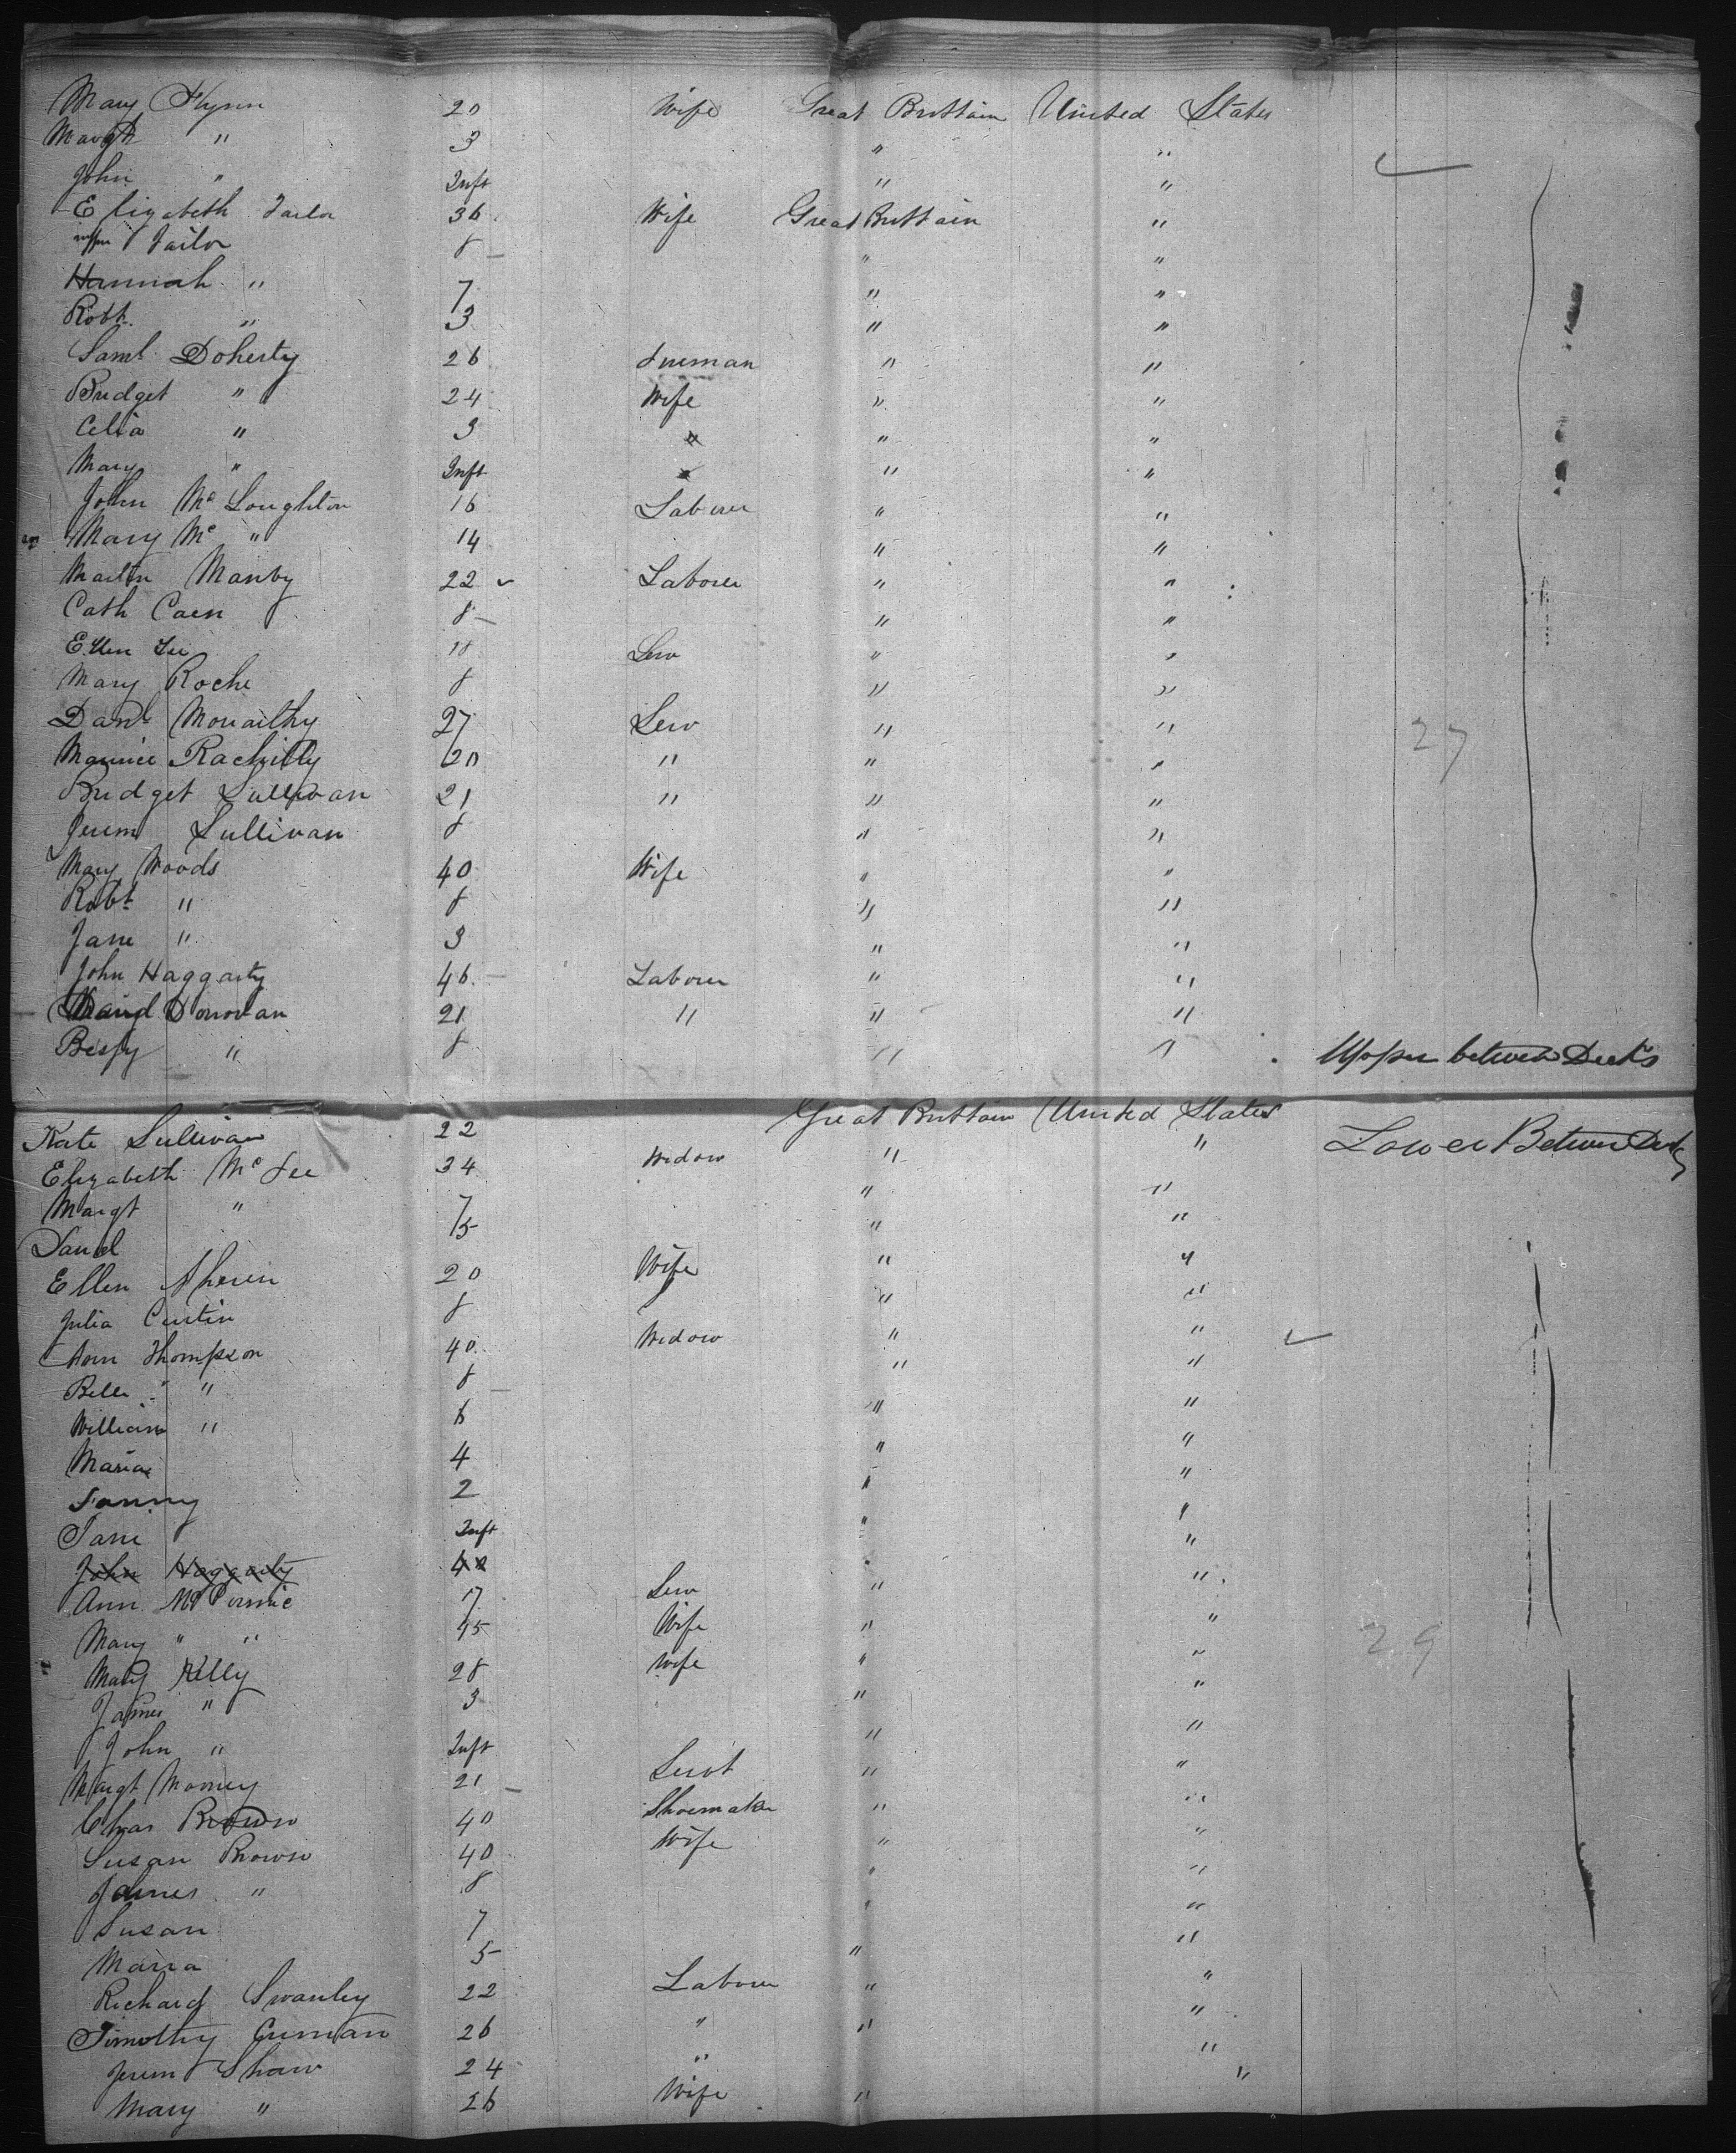 Mary Flynn 20 Wife Great Brittain United States
Margt " 3 " "
John " Inft " "
Elizabeth Tailor 36 Wife Great Brittain "
Tailor 8 " "
Hannah " 7 " "
Robt " 3 " "
Saml Doherty 26 " "
Bridget " 24 Wife " "
Celia " 3 " "
Mary " Inft " "
John Mc Loughlin 16 Laborer " "
Mary Mc " 14 " "
Martin Manby 22 Laborer " "
Cath Caen 8 " "
Ellen Lee 18 Serv " "
Mary Roche 8 " "
Danl Moriarthy 27 Serv " "
Maurice 20 " " "
Bridget Sullivan 21 " " "
Jerem Sullivan 8 " "
Mary Woods 40 Wife " "
Robt " 8 " "
Jane " 3 " "
John Haggarty 46 Laborer " "
Donovan 21 " " "
Bessy " 8 " " Upper between Decks
27
Kate Sullivan 22 Great Brittain United States
Elizabeth Mc Fee 34 Widow " " Lower Between Decks
Margt " 7 " "
Danl 5 " "
Ellen Ahern 20 Wife " "
Julia Curtin 8 " "
Ann Thompson 40 Widow " "
Bella " 8 " "
William " 6 " "
Maria 4 " "
Fanny 2 " "
Jane Inft " "
John Haggarty 40 "
Ann 17 Serv " "
Mary " " 45 Wife " "
Mary Kelly 28 Wife " "
James " 3 " "
John " Inft " "
Margt Mooney 21 Servt " "
Chas Brown 40 Shoemaker " "
Susan Brown 40 Wife " "
James " 8 " "
Susan 7 " "
Maria 5 " "
Richard Swanley 22 Labourer " "
Timothy 26 " " "
Jerem Shaw 24 " "
Mary " 26 Wife "
29